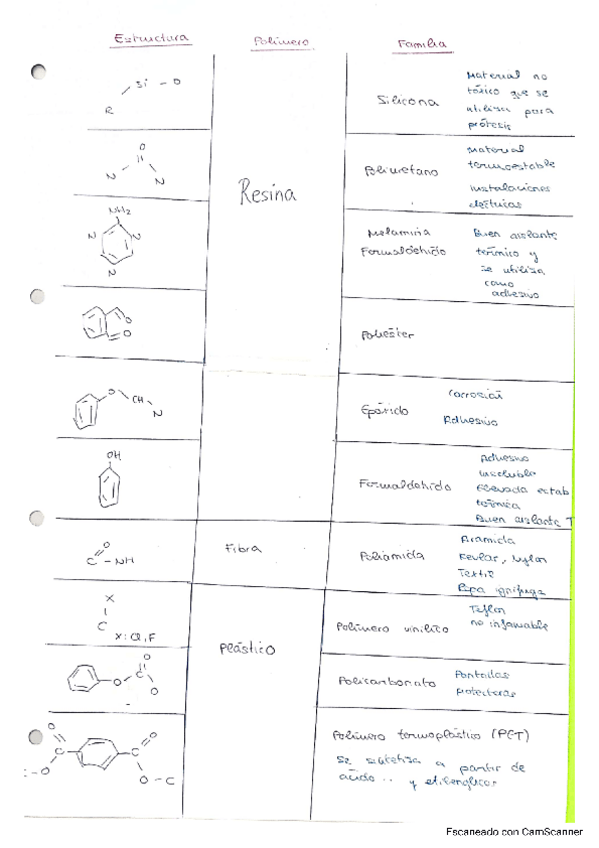 Estructura Polímero Familia
Si - O
R
Silicona
Material no
tóxico que se
utiliza para
prótesis
O
N N
Poliuretano
Material
termoestable
Instalaciones
eléctricas
Resina
NH2
N N
N
Melamina
Formaldehído
Buen aislante
térmico y
se utiliza
como
adhesivo
O
O
Poliéster
O CH
N
Epóxido
Corrosión
Adhesivo
OH
Formaldehído
Adhesivo
insoluble
Elevada estab
térmica
Buen aislante T
O
C - NH
Fibra
Poliamida
Aramida
Kevlar, Nylon
Textil
Ropa ignífuga
X
C
X: Cl, F
Plástico
Polímero vinílico
Teflon
no inflamable
O
O C
O
Policarbonato
Pantallas
protectoras
O O
C C
:-O O - C
Polímero termoplástico (PET)
Se sintetiza a partir de
ácido .. y etilenglicol
Escaneado con CamScanner